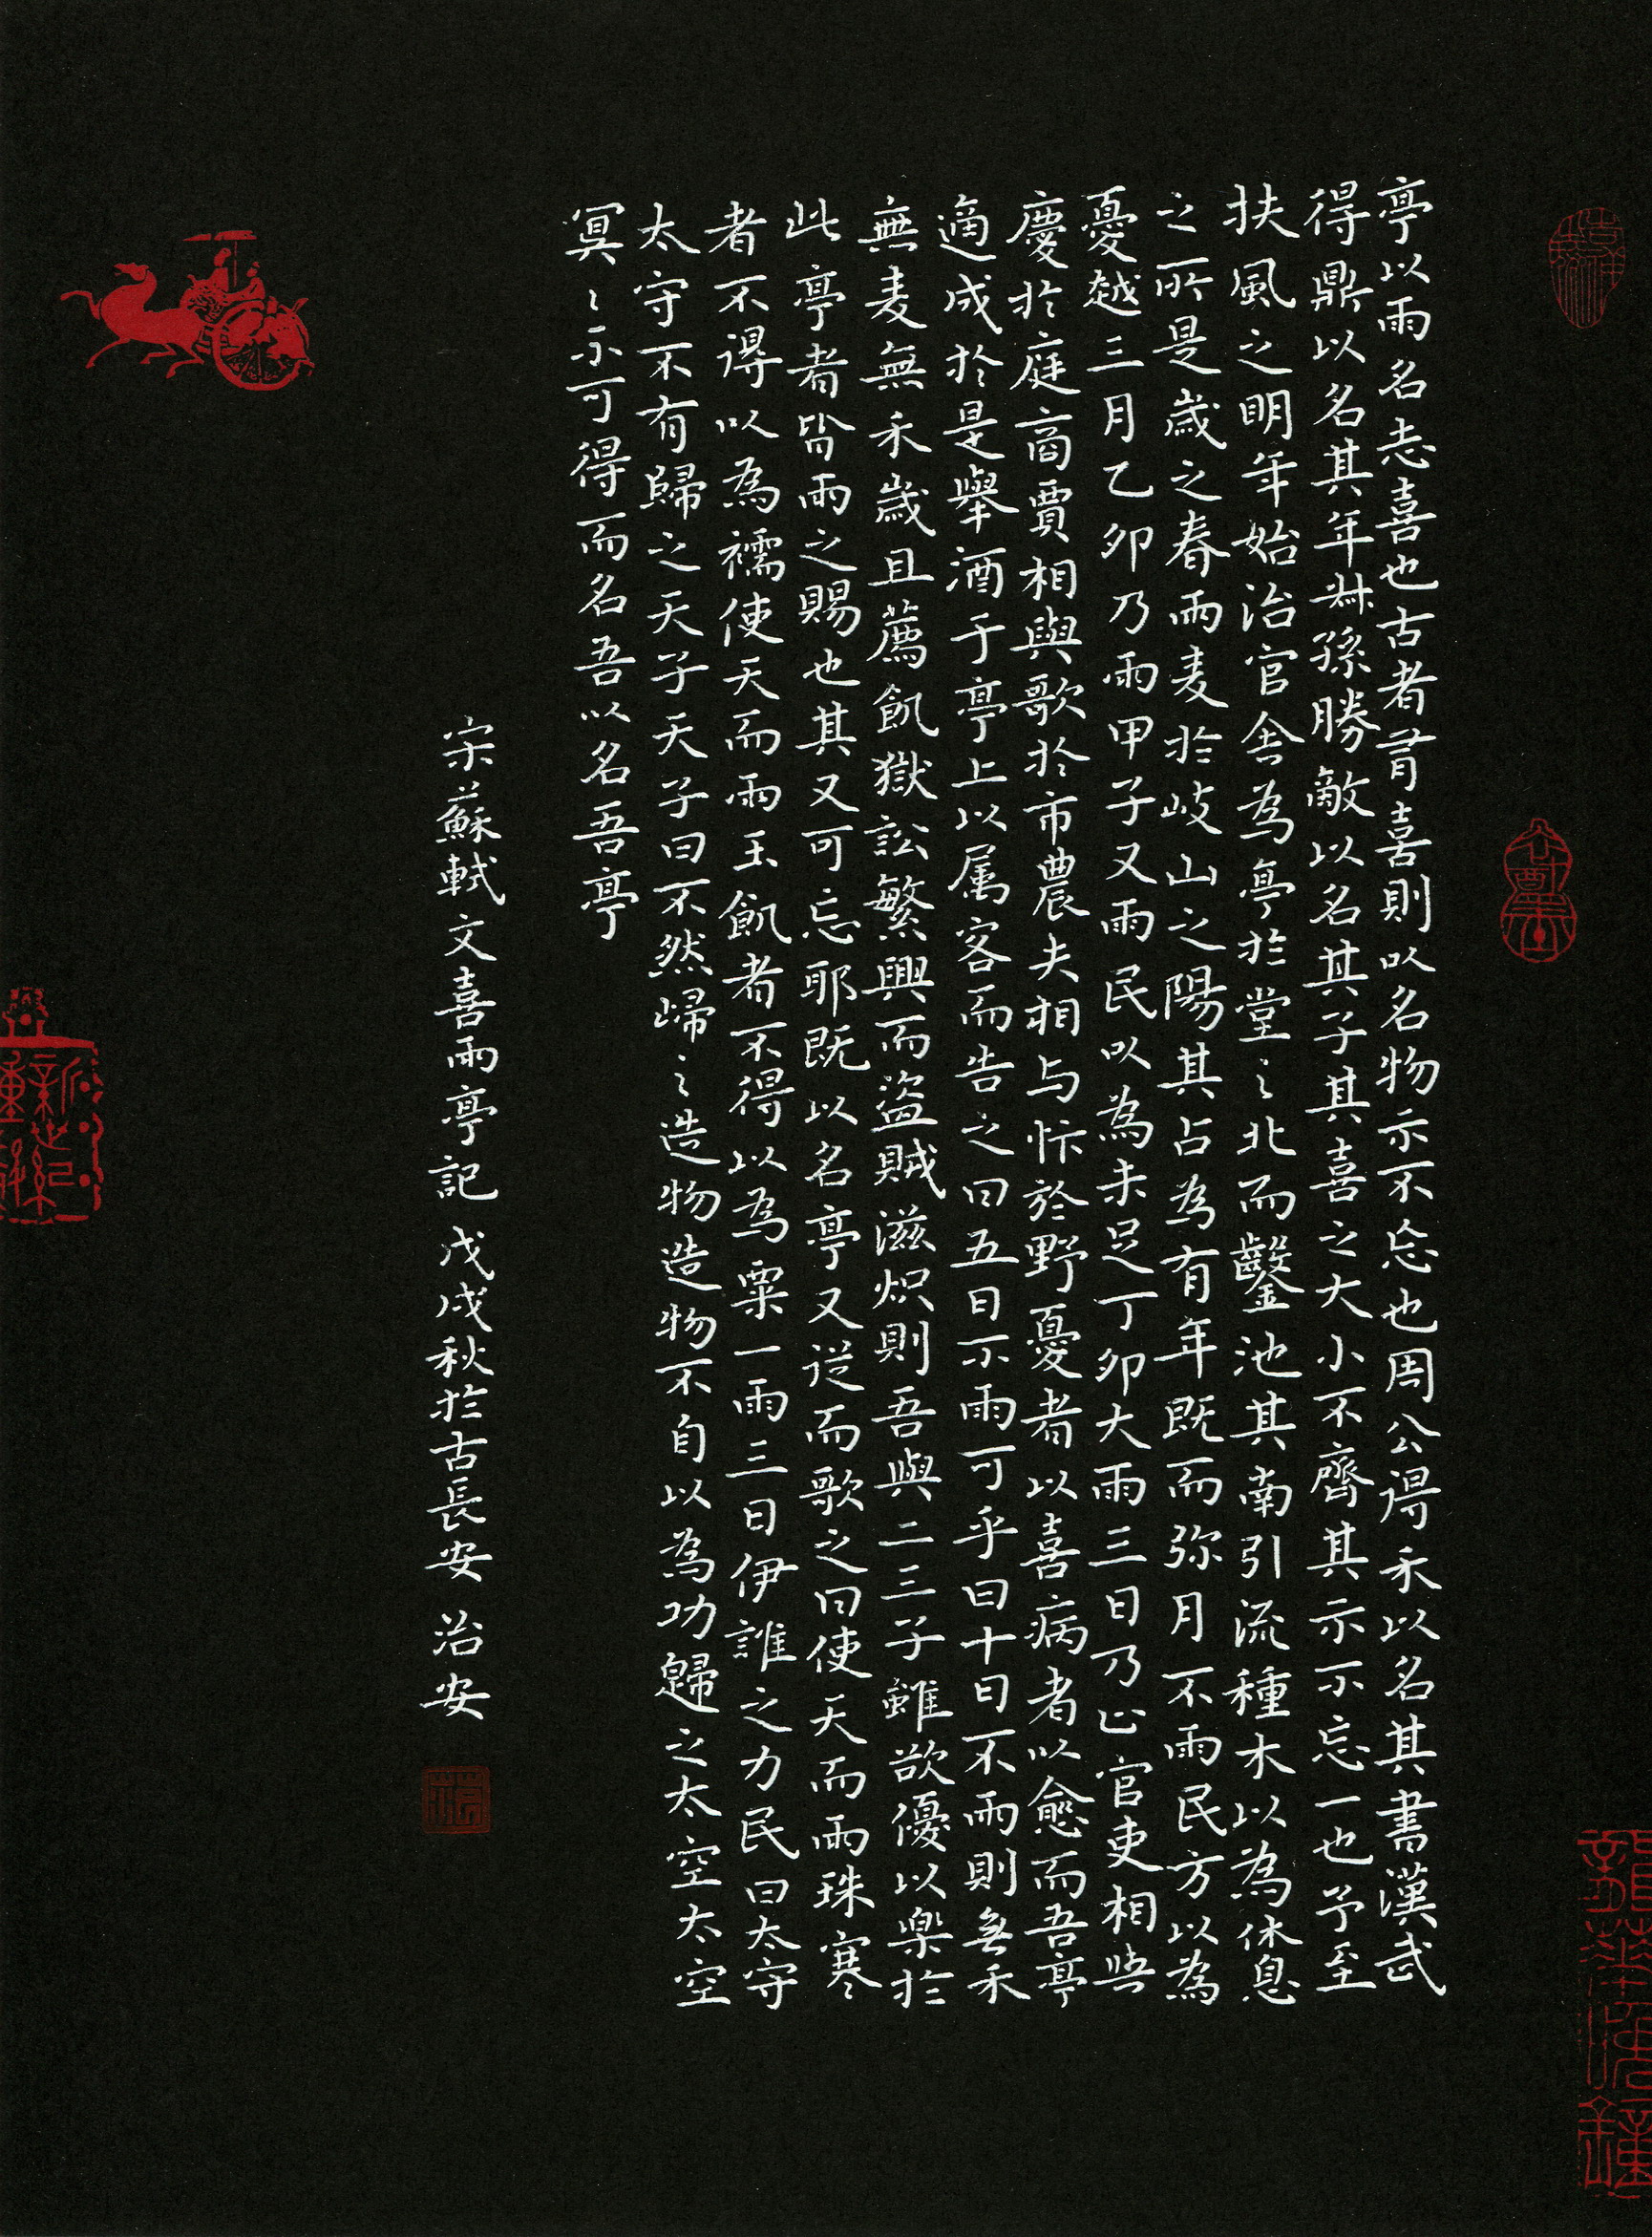 亭以雨名志喜也古者有喜則以名物示不忘也周公得禾以名其書漢武
得鼎以名其年叔孫勝敵以名其子其喜之大小不齊其示不忘一也予至
扶風之明年始治官舍為亭於堂之北而鑿池其南引流種木以為休息
之所是歲之春雨麦於岐山之陽其占為有年既而弥月不雨民方以為
憂越三月乙卯乃雨甲子又雨民以為未足丁卯大雨三日乃止官吏相與
慶於庭商賈相與歌於市農夫相与忭於野憂者以喜病者以愈而吾亭
適成於是舉酒于亭上以属客而告之曰五日不雨可乎曰十日不雨則無禾
無麦無禾歲且薦飢獄訟繁興而盜賊滋炽則吾與二三子雖欲優以樂於
此亭者皆雨之賜也其又可忘耶既以名亭又従而歌之曰使天而雨珠寒
者不得以為襦使天而雨玉飢者不得以為粟一雨三日伊誰之力民曰太守
太守不有歸之天子天子曰不然歸之造物造物不自以為功歸之太空太空
冥冥不可得而名吾以名吾亭
宋蘇軾文喜雨亭記 戊戌秋於古長安 治安